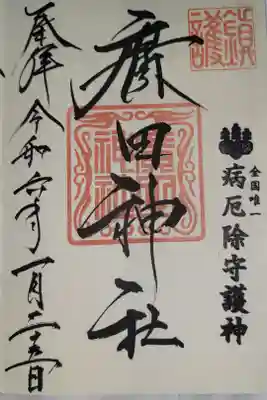 鎮護
全国唯一
病厄除守護神
廣田神社
奉拝 令和六年一月二十五日